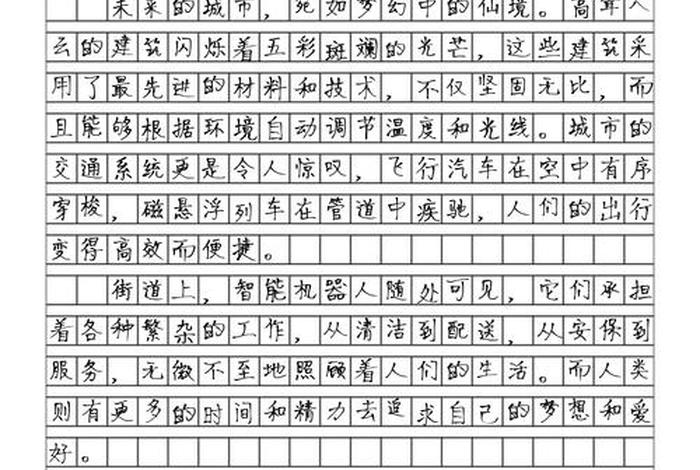 未来的城市，宛如梦幻中的仙境。高耸入
云的建筑闪烁着五彩斑斓的光芒，这些建筑采
用了最先进的材料和技术，不仅坚固无比，而
且能够根据环境自动调节温度和光线。城市的
交通系统更是令人惊叹，飞行汽车在空中有序
穿梭，磁悬浮列车在管道中疾驰，人们的出行
变得高效而便捷。
街道上，智能机器人随处可见，它们承担
着各种繁杂的工作，从清洁到配送，从安保到
服务，无微不至地照顾着人们的生活。而人类
则有更多的时间和精力去追求自己的梦想和爱
好。